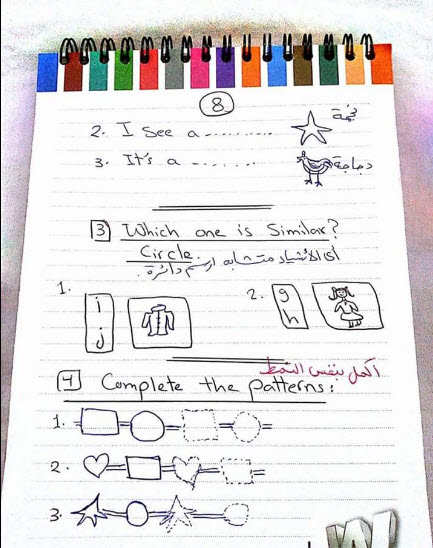 8
2. I see a ---------- نجمة
3. It's a ------- دجاجة
3 Which one is Similar?
Circle. أي الأشياء متشابه ارسم دائرة.
1. i j
2. g h
4 Complete the patterns: اكمل بنفس النمط
1.
2.
3.